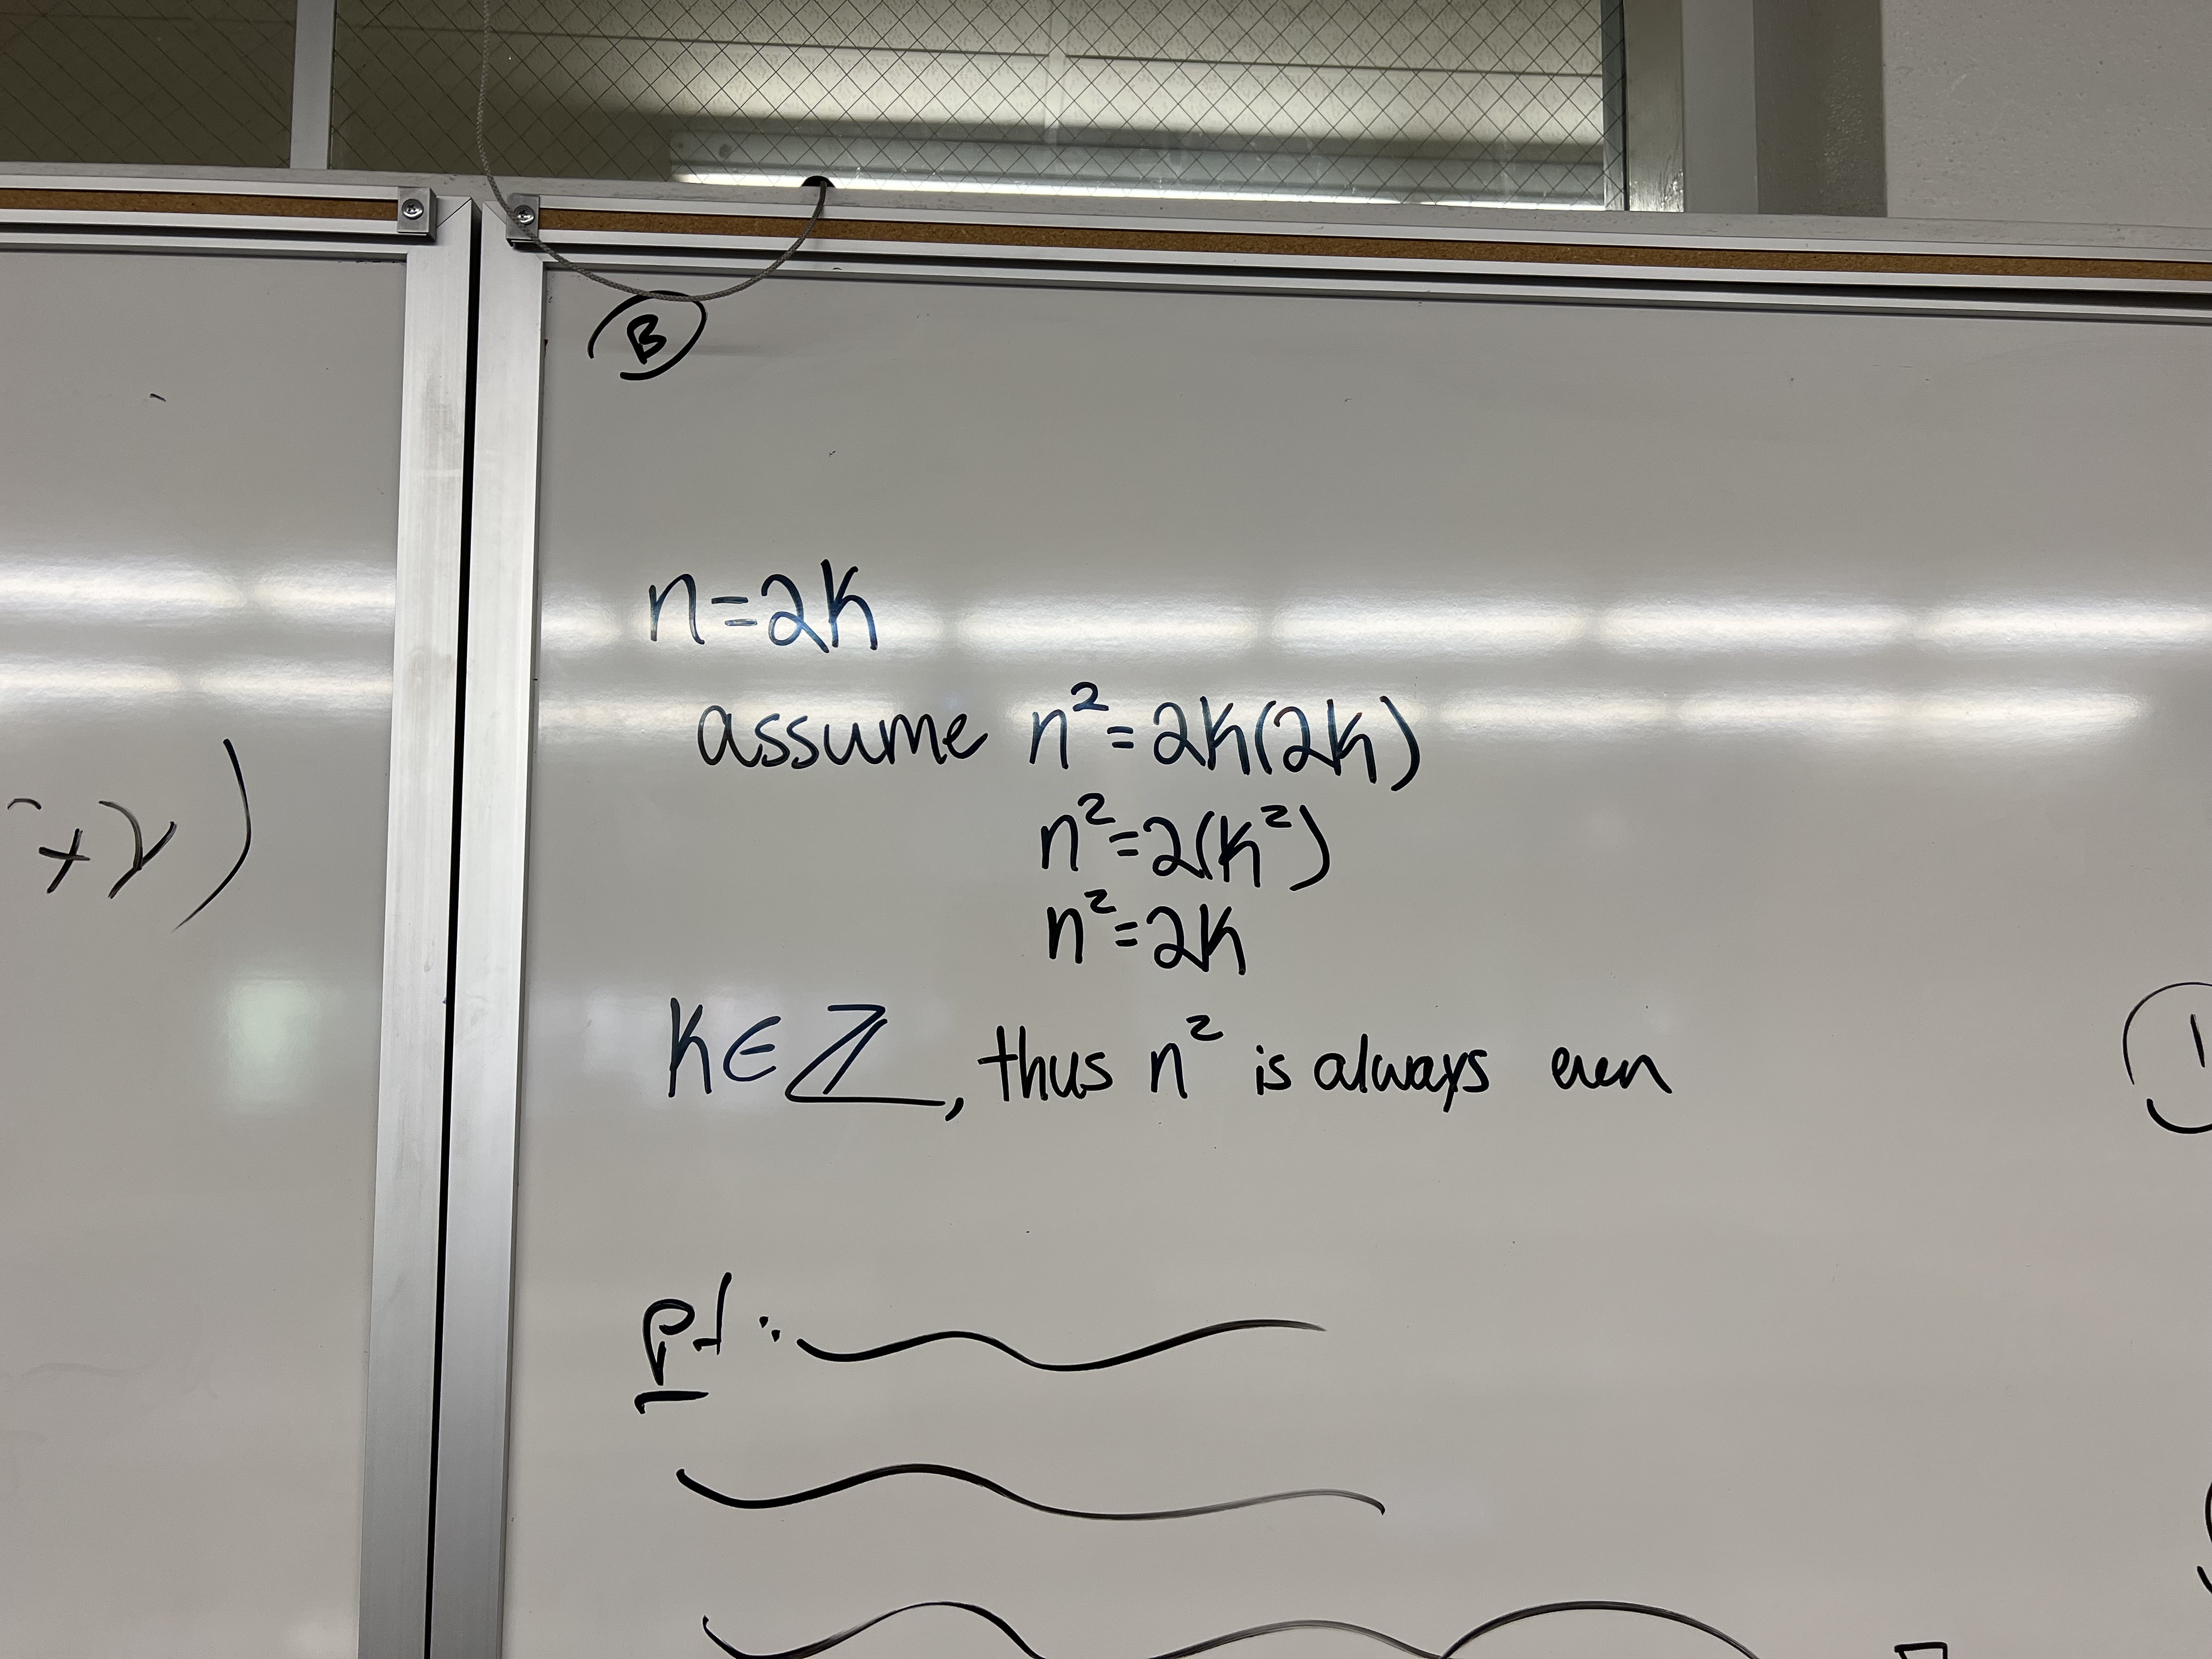 B
n=2k
assume n²=2k(2k)
n²=2(k²)
n²=2k
+y)
k∈ℤ, thus n² is always even
1
Pf: